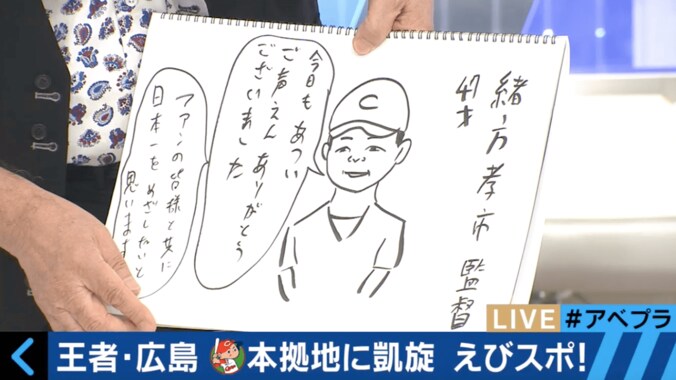 緒方孝市 監督
47才
今日もあつい
ご声えんありがとう
ございました
ファンの皆様と共に
日本一をめざしたいと
思います
C
LIVE
#アベプラ
王者・広島 本拠地に凱旋 えびスポ!